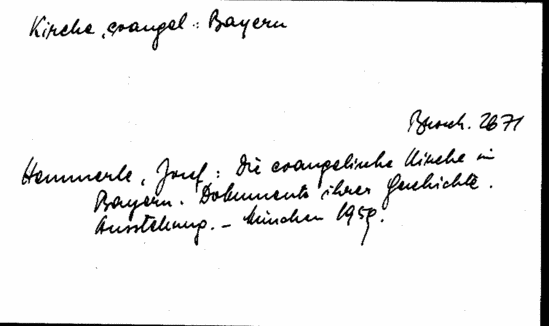 Kirche, evangel.: Bayern
Brosch. 2671
Hemmerle, Josef: Die evangelische Kirche in
Bayern. Dokumente ihrer Geschichte.
Ausstellung. – München 1959.